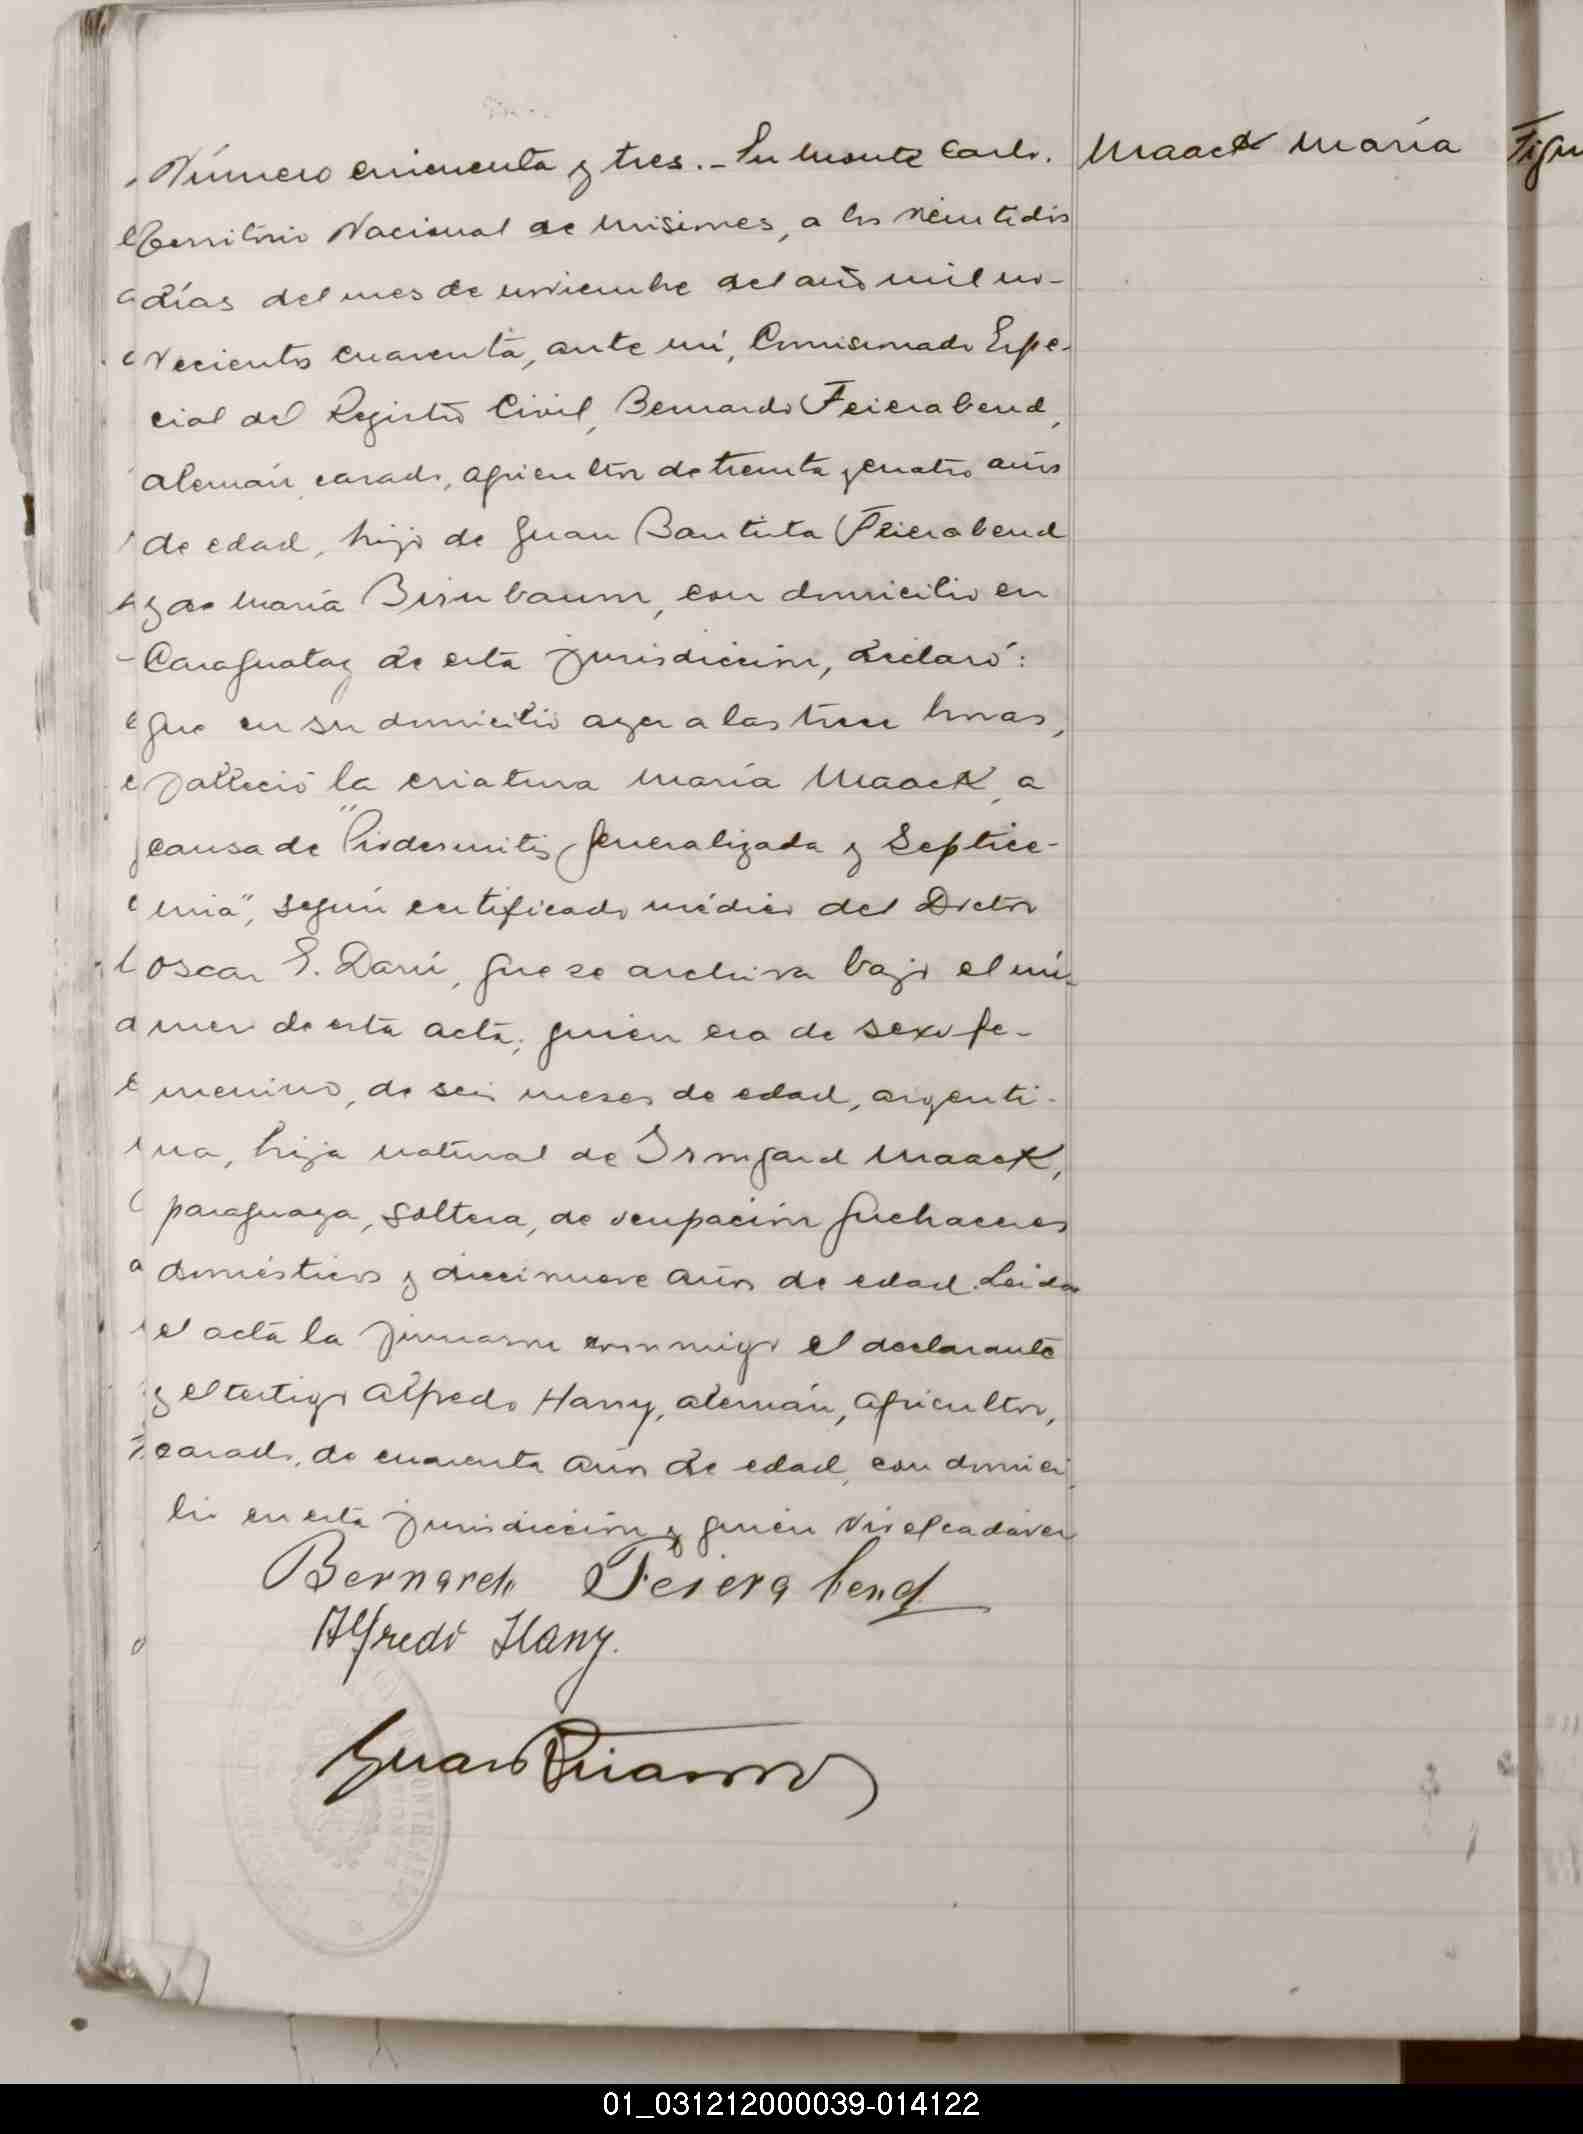 Número cincuenta y tres.- En Monte Carlo. Maack María
Territorio Nacional de Misiones, a los veintidos
días del mes de noviembre del año mil no-
vecientos cuarenta, ante mí, Comisionado Espe-
cial del Registro Civil, Bernardo Feierabend,
alemán, casado, agricultor de treinta y cuatro años
de edad, hijo de Juan Bautista Feierabend
y de María Birnbaum, con domicilio en
Caraguatay de esta jurisdicción, declaró:
que en su domicilio ayer a las trece horas,
falleció la criatura María Maack, a
causa de "Piodermitis generalizada y Septice-
mia", según certificado médico del Doctor
Oscar E. Darú, que se archiva bajo el nú-
mero de esta acta; quién era de sexo fe-
menino, de seis meses de edad, argenti-
na, hija natural de Irmgard Maack,
paraguaya, soltera, de ocupación quehaceres
domésticos y diecinueve años de edad. Leida
el acta la firmaron conmigo el declarante
y el testigo Alfredo Hany, alemán, agricultor,
casado, de cuarenta años de edad, con domici
lio en esta jurisdicción y quién vió el cadáver
Bernardo Feierabend
Alfredo Hany.
Juan
01_031212000039-014122